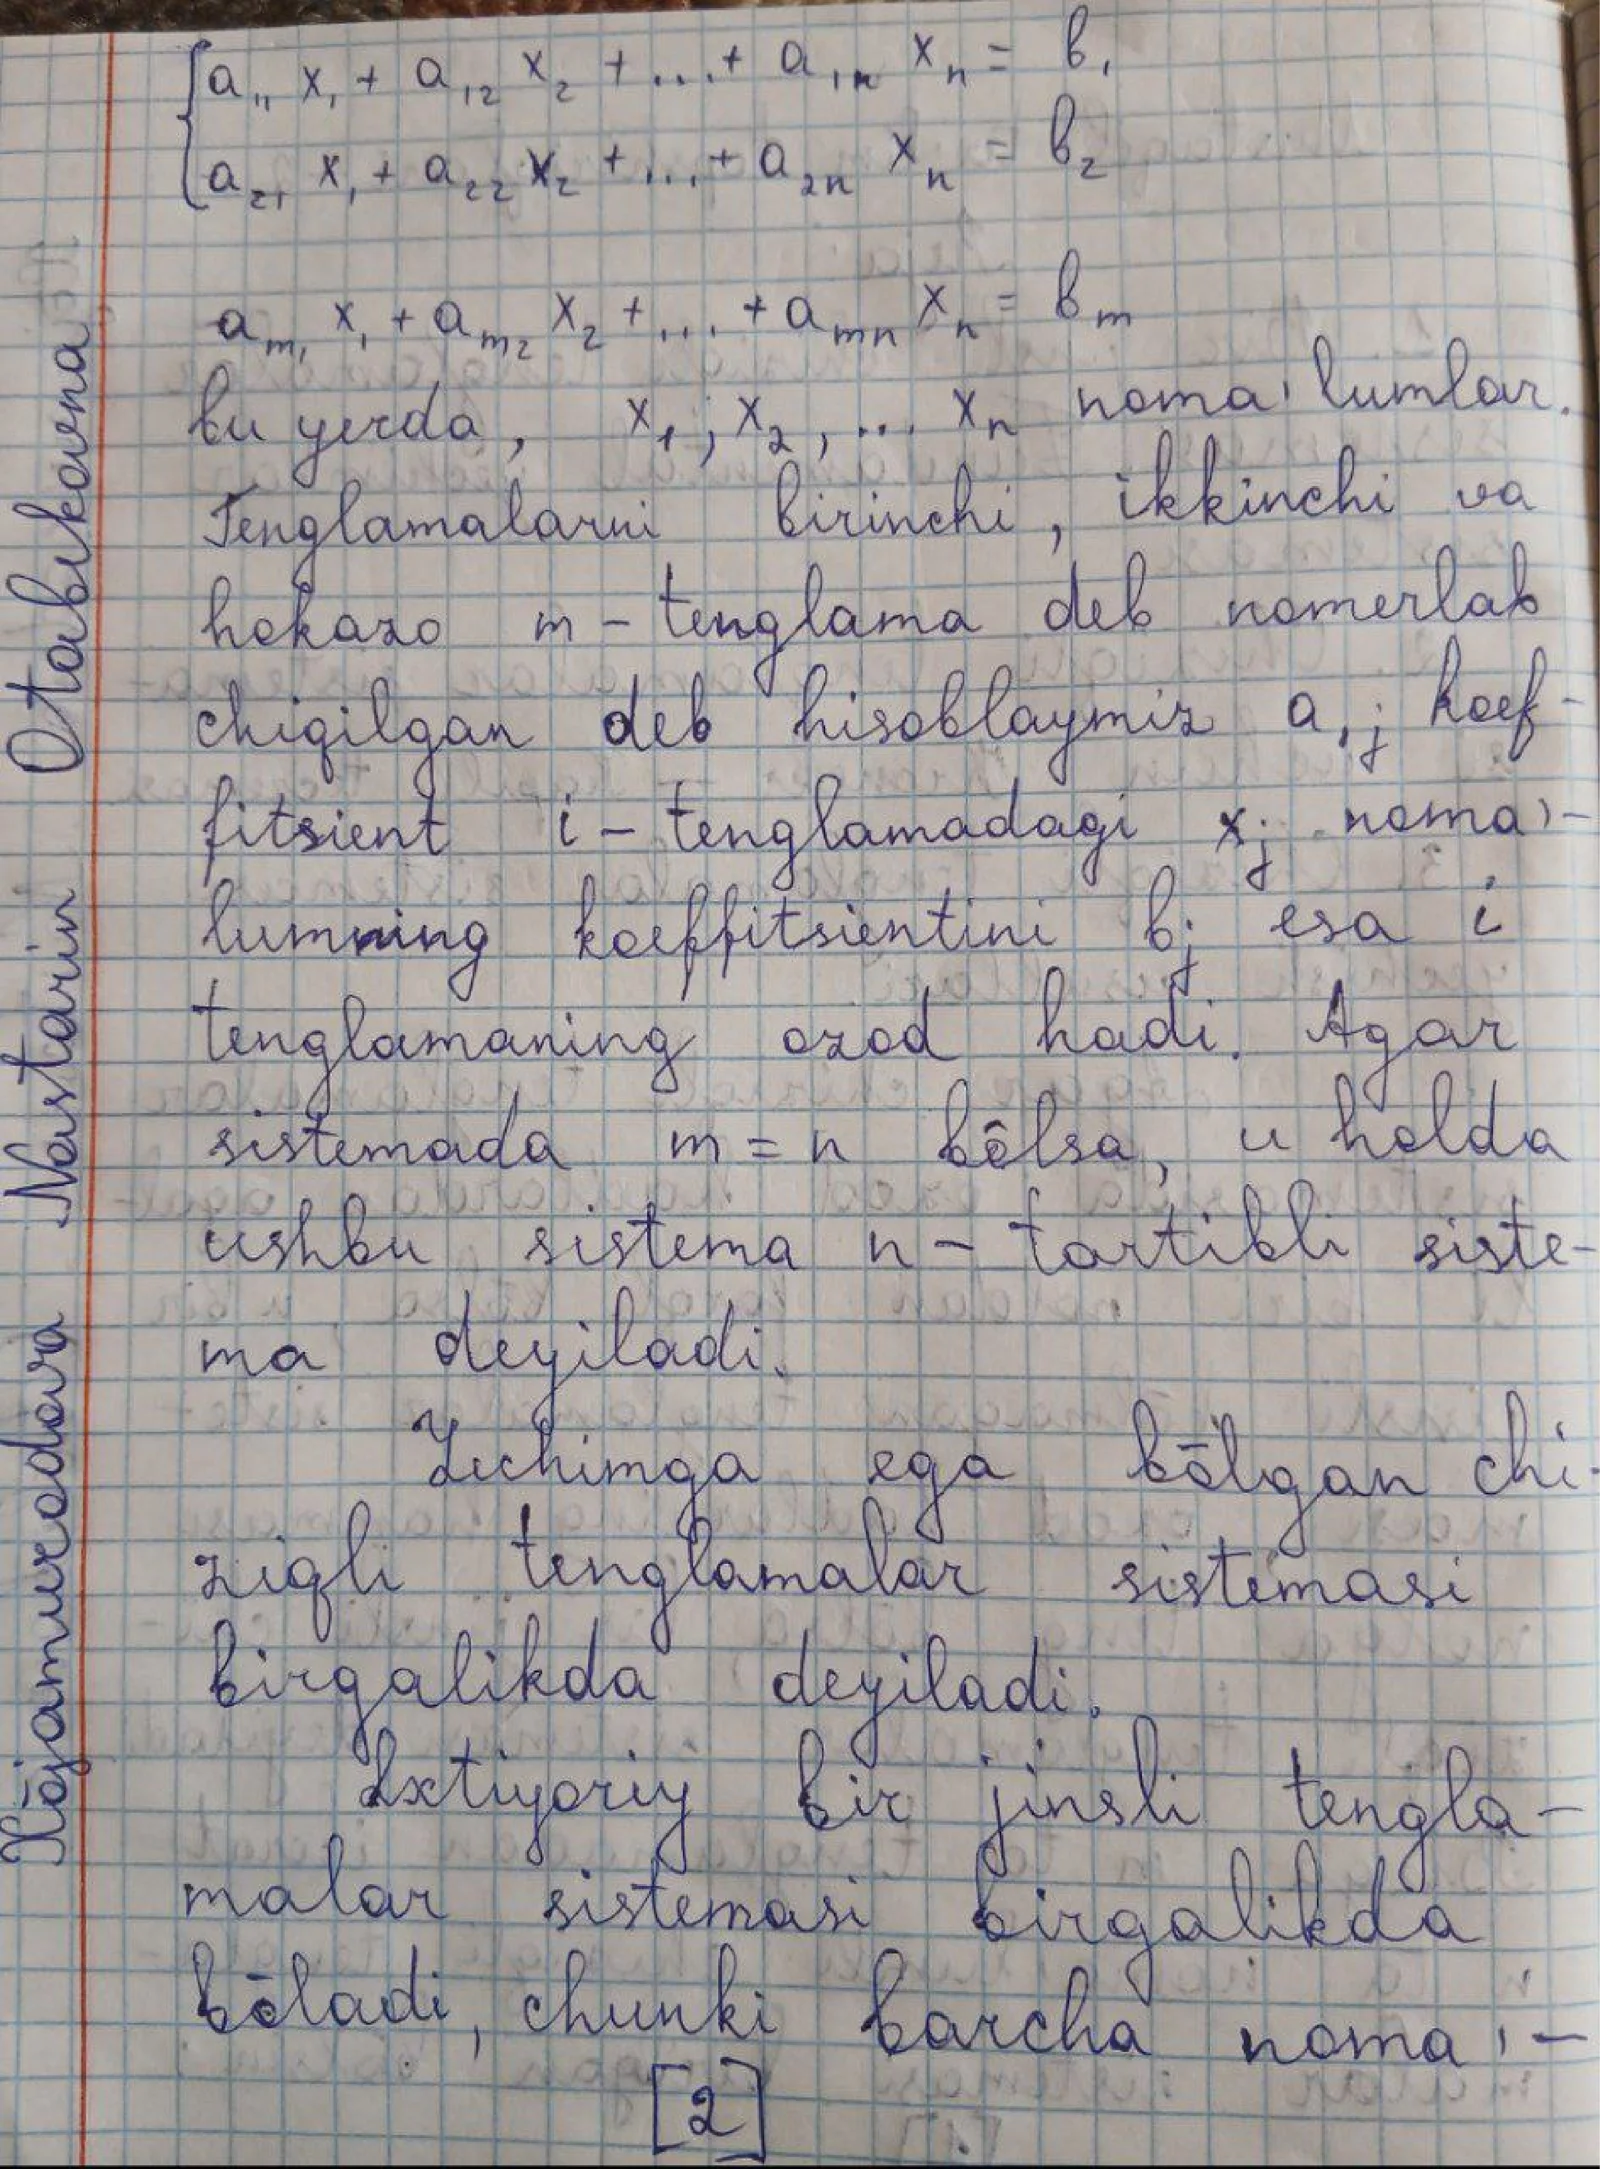 a₁₁ x₁ + a₁₂ x₂ + ... + a₁ₙ xₙ = b₁
a₂₁ x₁ + a₂₂ x₂ + ... + a₂ₙ xₙ = b₂
aₘ₁ x₁ + aₘ₂ x₂ + ... + aₘₙ xₙ = bₘ
bu yerda, x₁; x₂, ... xₙ noma'lumlar.
Tenglamalarni birinchi, ikkinchi va
hokazo m - tenglama deb nomerlab
chiqilgan deb hisoblaymiz aᵢⱼ koef-
fitsient i - tenglamadagi xⱼ noma'-
lumning koeffitsientini bⱼ esa i
tenglamaning ozod hadi. Agar
sistemada m = n bôlsa, u holda
ushbu sistema n - tartibli siste-
ma deyiladi.
Yechimga ega bōlgan chi-
ziqli tenglamalar sistemasi
birgalikda deyiladi.
Ixtiyoriy bir jinsli tengla-
malar sistemasi birgalikda
bōladi, chunki barcha noma'-
[2]
Xōjamurodova Nastarin Otabekovna